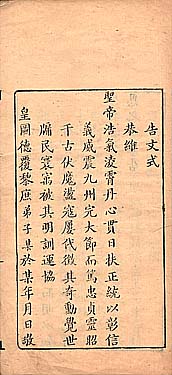 告文式
恭維
聖帝浩氣凌霄丹心貫日扶正統以彰信
義威震九州完大節而篤忠貞靈昭
千古伏魔盪寇屢代徵其奇勳覺世
牖民寰寓被其明訓運協
皇圖德覆黎庶弟子某於某年月日敬